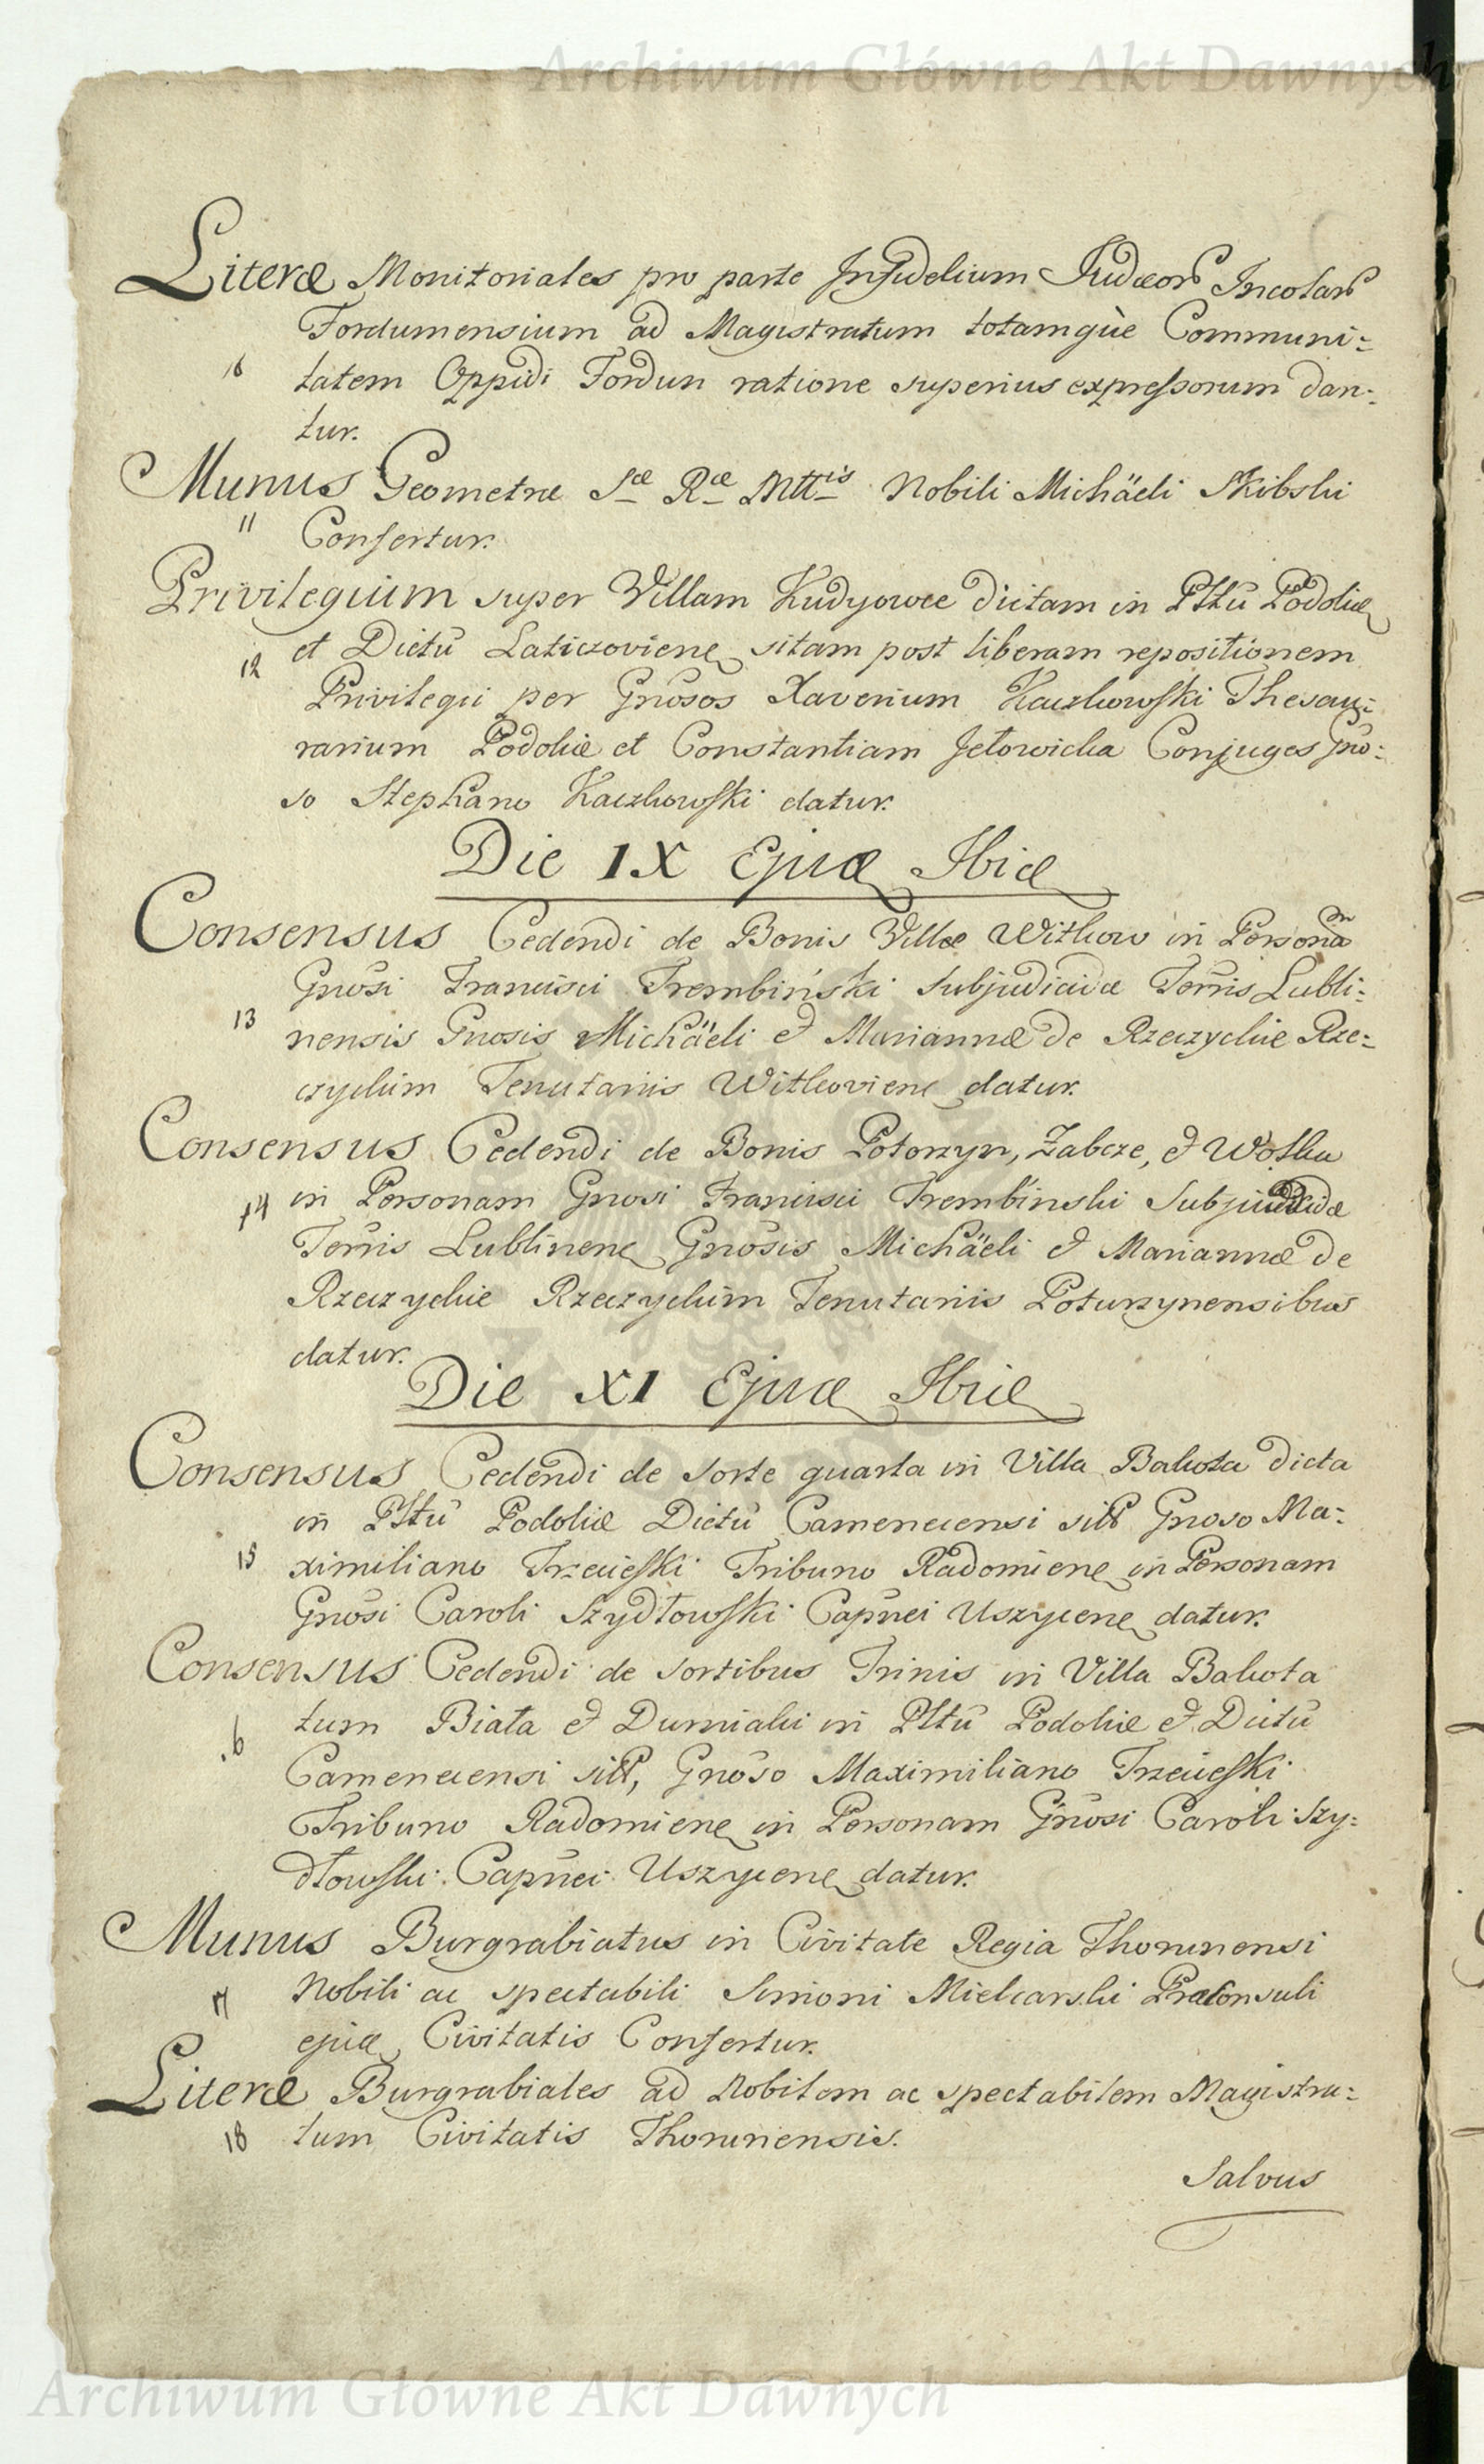 Archiwum Główne Akt Dawnych
Literæ Monitoriales pro parte Infidelium Judæor Incolar
Fordumensium ad Magistratum totamqùe Communi=
tatem Oppidi Fordun ratione superius expressorum dan=
tur.
Munus Geometræ Sæ Ræ Mttis Nobili Michäeli Skibski
11 Confertur.
Privilegium super Villam Kudyowce dictam in Pttũ Podoliæ
12 et Dictũ Laticzoviene sitam post liberam repositionem
Privilegii per Gnõsos Xaverium Kaczkowski Thesau=
rarium Podoliæ et Constantiam Jełowicka Conjuges Gno=
so Stephano Kaczkowski datur.
Die IX Ejuæ Ibiæ
Consensus Cedendi de Bonis Villæ Witkow in Personam
Gnõsi Francisci Trembiński Subjudicidæ Terris Lubli=
13 nensis Gnosis Michäeli et Mariannæ de Rzeczyckie Rze=
czyckim Tenutariis Witkoviene datur.
Consensus Cedendi de Bonis Potorzyn, Zabcze, et Wolka
14 in Personam Gnosi Francisci Trembinski Subjudicidæ
Terris Lublinene Gnõsis Michäeli et Mariannæ de
Rzeczyckie Rzeczyckim Tenutariis Poturzynensibus
datur.
Die XI Ejuæ Ibiæ
Consensus Cedendi de sorte quarta in Villa Bakota dicta
in Pttũ Podoliæ Dictũ Camenecensi Gnoso Ma=
15 ximiliano Trzecieski Tribuno Radomiene in Personam
Gnõsi Caroli Szydłowski Capnei Uszycene datur.
Consensus Cedendi de sortibus Trinis in Villa Bakota
tum Biała et Dumiaki in Pttũ Podoliæ et Dictũ
Camenecensi Gnõso Maximiliano Trzecieski
Tribuno Radomiene in Personam Gnõsi Caroli Szy=
dłowski Capnei Uszycene datur.
Munus Burgrabiatus in Civitate Regia Thorunensi
17 Nobili ac spectabili Simoni Mielcarski Præconsuli
ejuæ Civitatis Confertur.
Literæ Burgrabiales ad Nobilem ac spectabilem Magistra=
18 tum Civitatis Thorunensis.
Salvus
Archiwum Główne Akt Dawnych